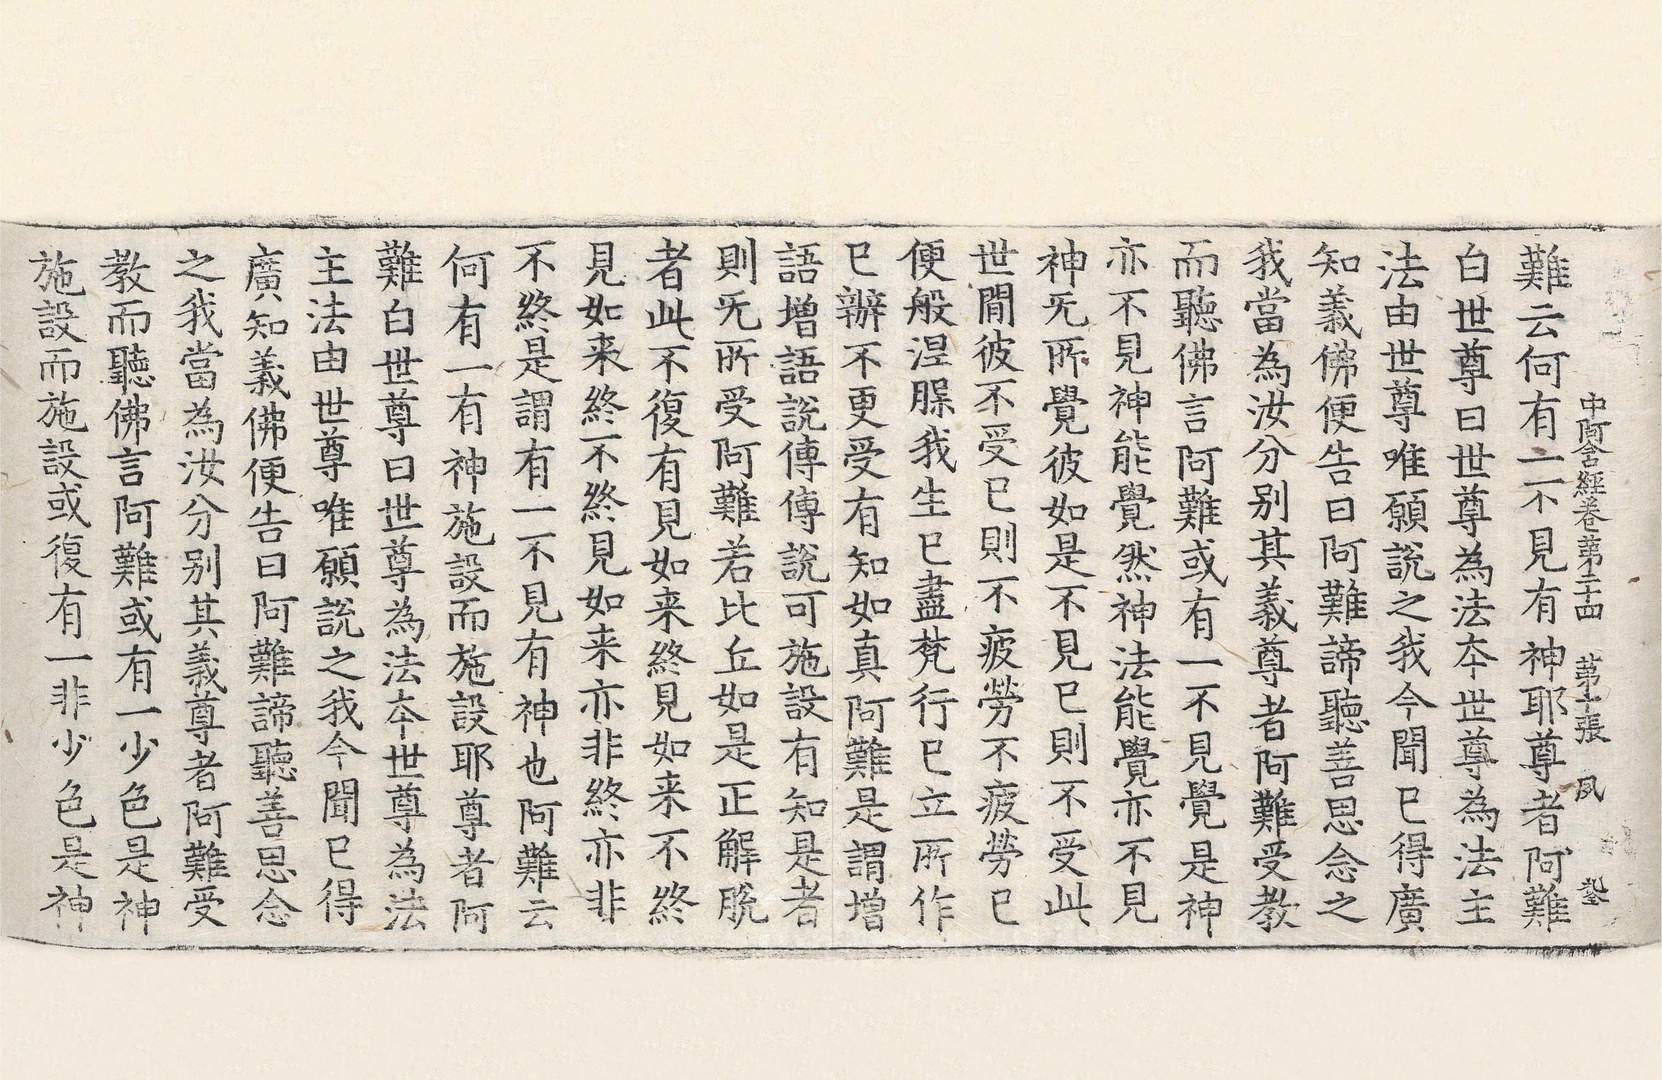 中阿含經卷第二十四 第十張 夙
難云何有一不見有神耶尊者阿難
白世尊曰世尊為法夲世尊為法主
法由世尊唯願說之我今聞已得廣
知義佛便告曰阿難諦聽善思念之
我當為汝分別其義尊者阿難受教
而聽佛言阿難或有一不見覺是神
亦不見神能覺然神法能覺亦不見
神旡所覺彼如是不見已則不受此
世間彼不受已則不疲勞不疲勞已
便般涅槃我生已盡梵行已立所作
已辦不更受有知如真阿難是謂增
語增語說傳傳說可施設有知是者
則旡所受阿難若比丘如是正解脫
者此不復有見如来終見如来不終
見如来終不終見如来亦非終亦非
不終是謂有一不見有神也阿難云
何有一有神施設而施設耶尊者阿
難白世尊曰世尊為法夲世尊為法
主法由世尊唯願說之我今聞已得
廣知義佛便告曰阿難諦聽善思念
之我當為汝分別其義尊者阿難受
教而聽佛言阿難或有一少色是神
施設而施設或復有一非少色是神